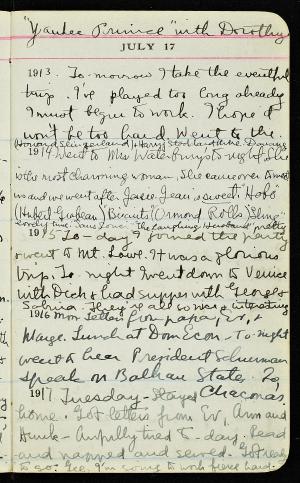 "Yankee Prince" with Dorothy
JULY 17
1913. To-morrow I take the eventful
trip. I've played too long already
I must begin to work. I hope it
won't be too hard. Went to the
(Howard Slingerland) & Harry Stoddard
1914 Went to Mrs to-night. She
is the most charming woman. She came over to meet
us and we went after Josie. Jean is sweet. "Hobo"
(Hubert Graham) "Biscuits" (Ormond Rolls) "Sline"
Lovely time. "The Laughing Husband" pretty
1915 To-day I joined the party
& went to Mt. Lowe. It was a glorious
trip. To-night I went down to Venice
with Dick & had supper with George &
Sabina. They're all so was interesting
1916 Mon. Letters from papa, Ev, &
Marge. Lunch at Dom Econ. To-night
went to hear President Schurman
speak on Balkan States. To
1917 Tuesday - Stayed Chaconas.
home. Got letters from Ev, Arm and
Hunk - Awfully tired to-day. Read
and napped and sewed. Got ready
to go. Gee, I'm going to work fierce hard.